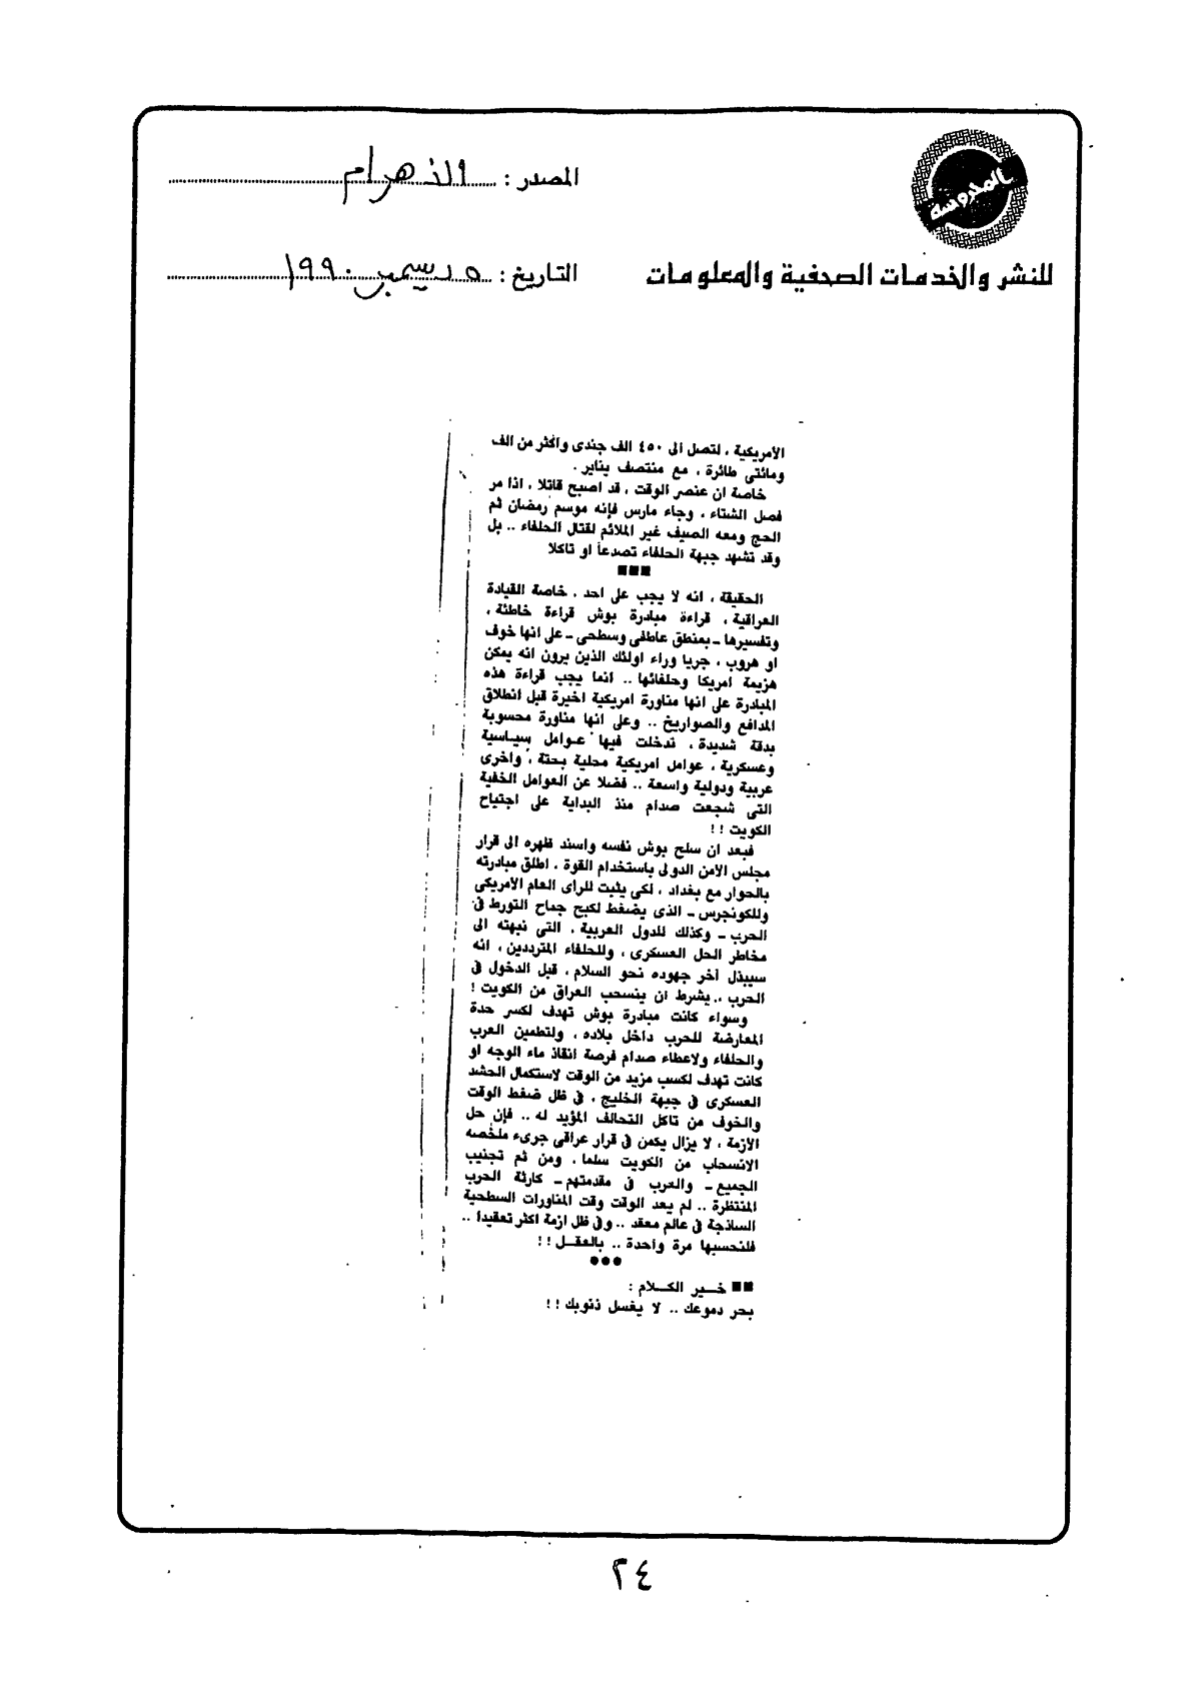 المحروسة
للنشر والخدمات الصحفية والمعلومات
المصدر : الأهرام
التاريخ : ٥ ديسمبر ١٩٩٠
الأمريكية ، لتصل الى ٤٥٠ الف جندى واكثر من الف
ومائتى طائرة ، مع منتصف يناير .
خاصة ان عنصر الوقت ، قد اصبح قاتلا ، اذا مر
فصل الشتاء ، وجاء مارس فإنه موسم رمضان ثم
الحج ومعه الصيف غير الملائم لقتال الحلفاء .. بل
وقد تشهد جبهة الحلفاء تصدعاً او تاكلا
■■■
الحقيقة ، انه لا يجب على احد ، خاصة القيادة
العراقية ، قراءة مبادرة بوش قراءة خاطئة ،
وتفسيرها ـ بمنطق عاطفى وسطحى ـ على انها خوف
او هروب ، جريا وراء اولئك الذين يرون انه يمكن
هزيمة امريكا وحلفائها .. انما يجب قراءة هذه
المبادرة على انها مناورة امريكية اخيرة قبل انطلاق
المدافع والصواريخ .. وعلى انها مناورة محسوبة
بدقة شديدة ، تدخلت فيها عوامل سياسية
وعسكرية ، عوامل امريكية محلية بحتة ، واخرى
عربية ودولية واسعة .. فضلا عن العوامل الخفية
التى شجعت صدام منذ البداية على اجتياح
الكويت ! !
فبعد ان سلح بوش نفسه واسند ظهره الى قرار
مجلس الأمن الدولى باستخدام القوة ، اطلق مبادرته
بالحوار مع بغداد ، لكى يثبت للرأى العام الأمريكى
وللكونجرس ـ الذى يضغط لكبح جماح التورط فى
الحرب ـ وكذلك للدول العربية ، التى نبهته الى
مخاطر الحل العسكرى ، وللحلفاء المترددين ، انه
سيبذل آخر جهوده نحو السلام ، قبل الدخول فى
الحرب .. بشرط ان ينسحب العراق من الكويت !
وسواء كانت مبادرة بوش تهدف لكسر حدة
المعارضة للحرب داخل بلاده ، ولتطمين العرب
والحلفاء ولاعطاء صدام فرصة انقاذ ماء الوجه او
كانت تهدف لكسب مزيد من الوقت لاستكمال الحشد
العسكرى فى جبهة الخليج ، فى ظل ضغط الوقت
والخوف من تاكل التحالف المؤيد له .. فإن حل
الأزمة ، لا يزال يكمن فى قرار عراقى جرىء ملخصه
الانسحاب من الكويت سلما ، ومن ثم تجنيب
الجميع ـ والعرب فى مقدمتهم ـ كارثة الحرب
المنتظرة .. لم يعد الوقت وقت المناورات السطحية
الساذجة فى عالم معقد .. وفى ظل ازمة اكثر تعقيدا ..
فلنحسبها مرة واحدة .. بالعقــل ! !
●●●
■■ خــير الكــلام :
بحر دموعك .. لا يغسل ذنوبك ! !
٢٤